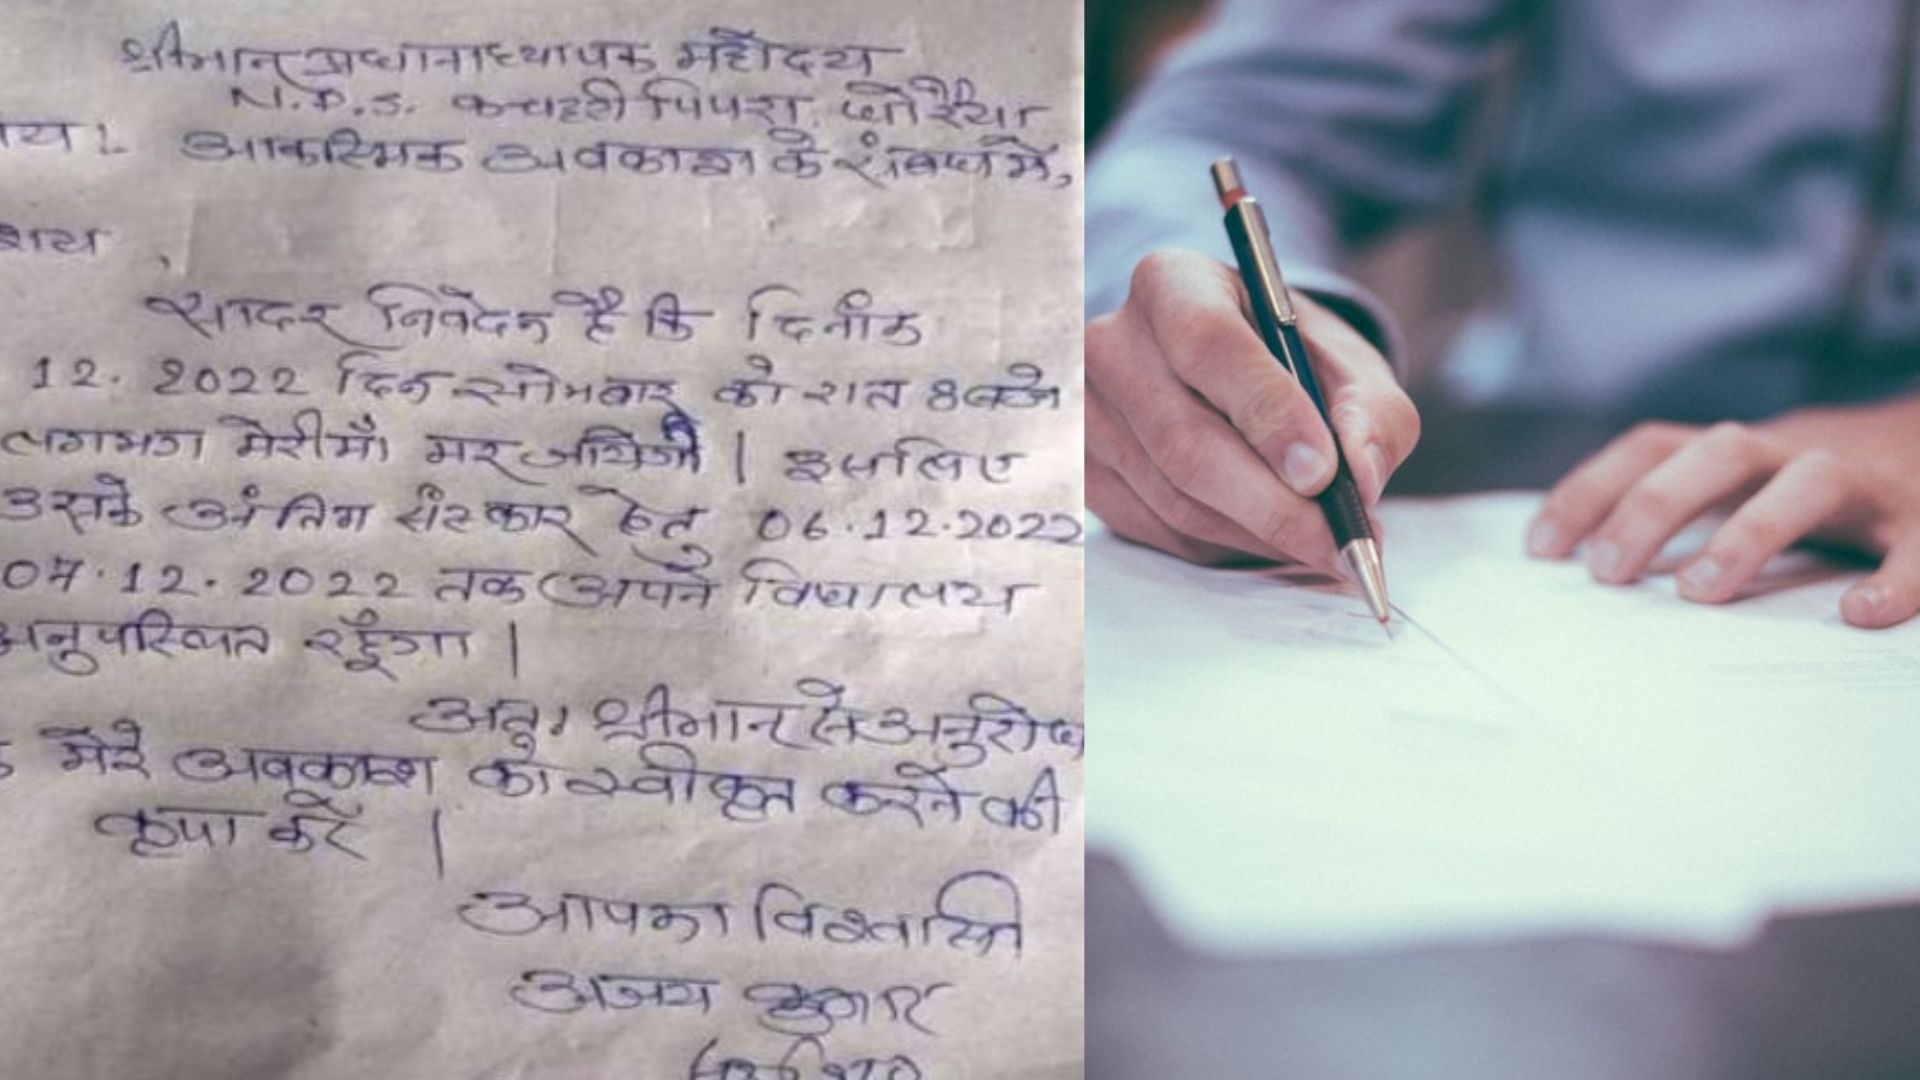 श्रीमान् प्रधानाध्यापक महोदय
N.P.S. कचहरी पिपरा, धोरैया
आकस्मिक अवकाश के संबंध में,
सादर निवेदन है कि दिनांक
12. 2022 दिन सोमवार को रात 8 बजे
लगभग मेरी माँ मर जायेगी | इसलिए
उसके अंतिम संस्कार हेतु 06.12.2022
07.12.2022 तक अपने विद्यालय
अनुपस्थित रहूँगा |
अतः श्रीमान् से अनुरोध
मेरे अवकाश को स्वीकृत करने की
कृपा करें |
आपका विश्वासी
अजय कुमार